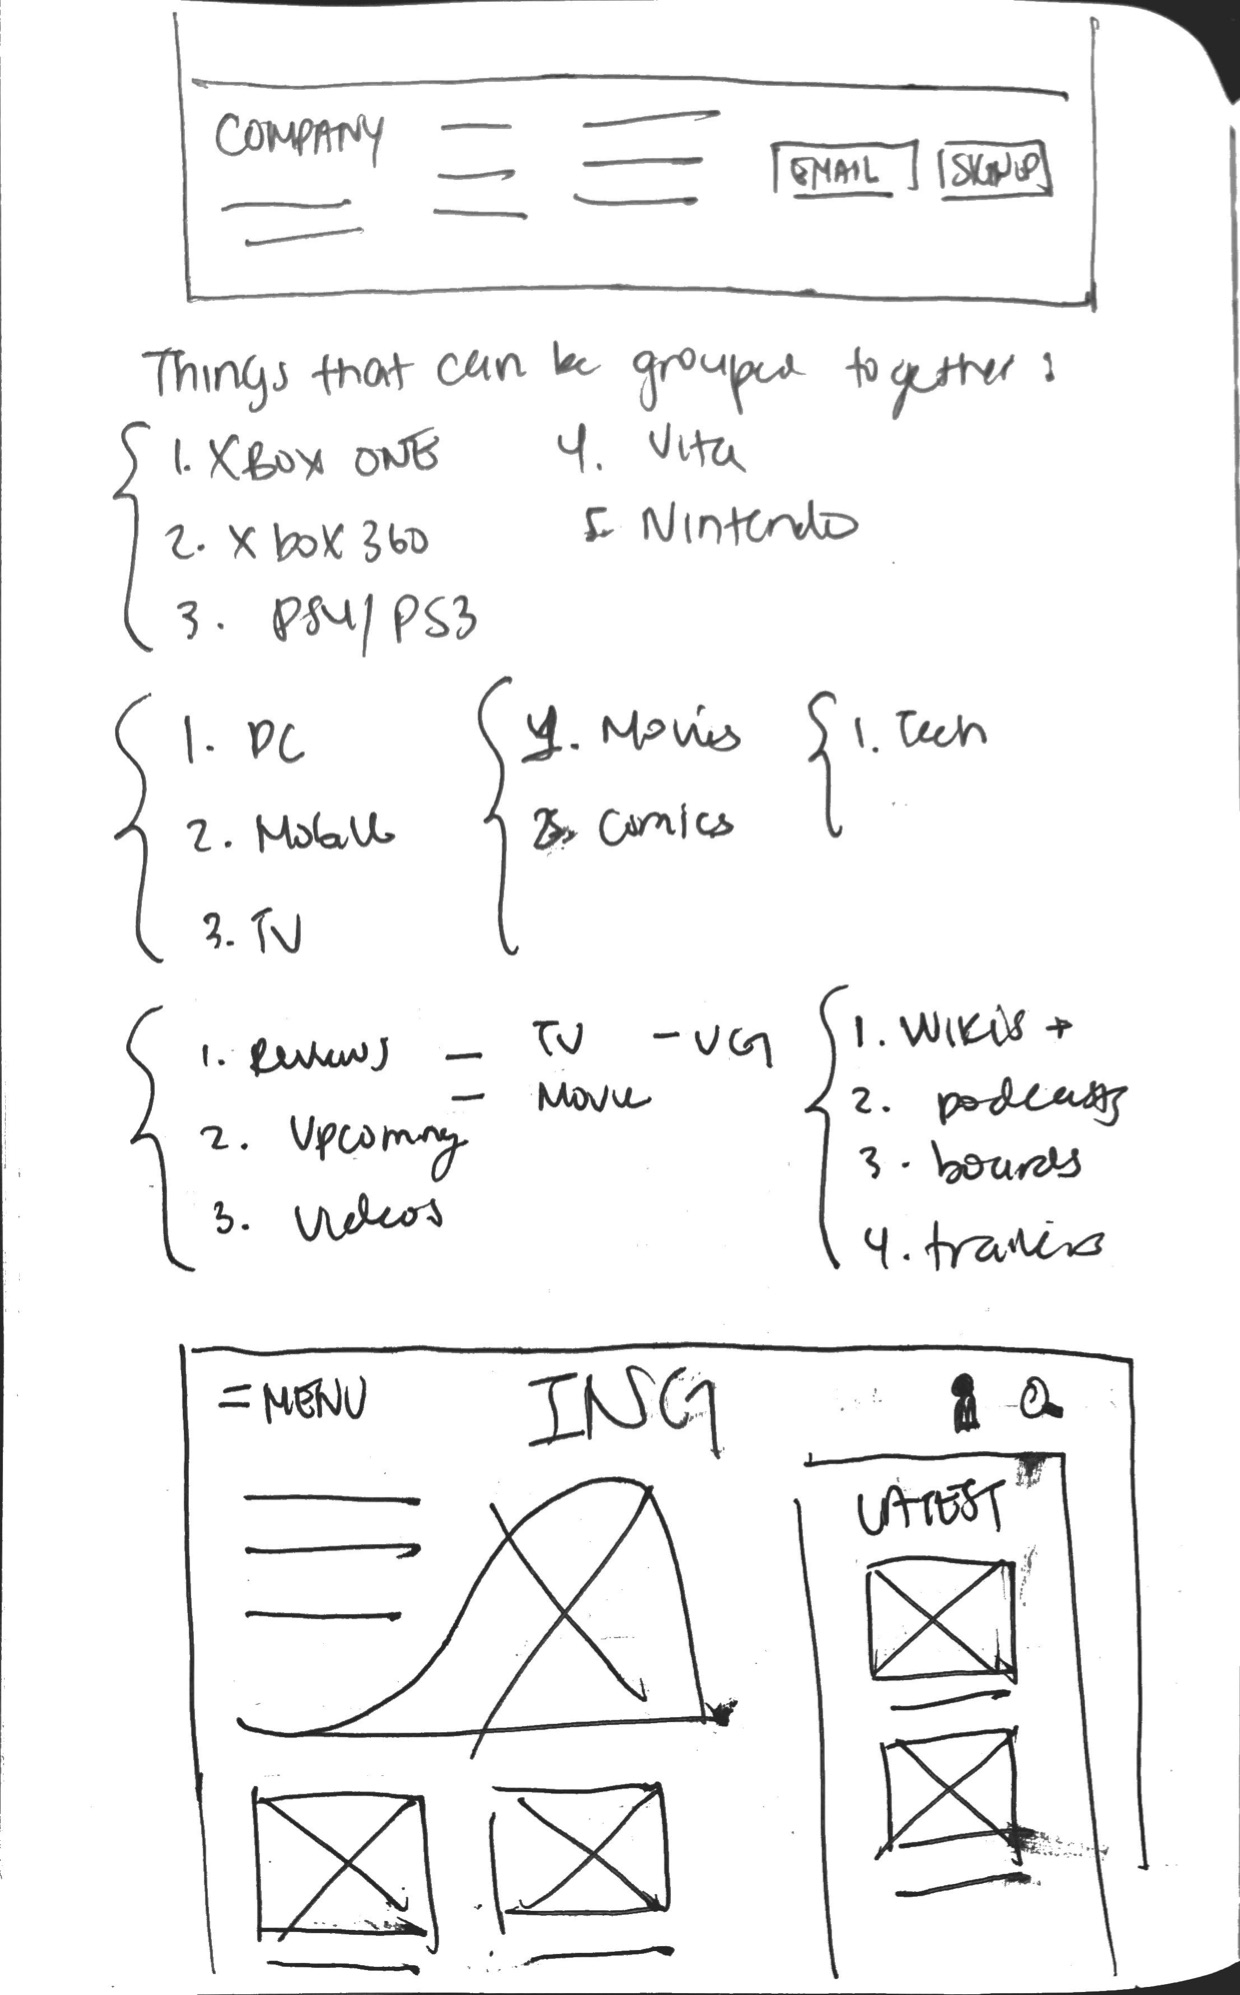 COMPANY
EMAIL
SIGNUP
Things that can be grouped together:
1. XBOX ONE
2. Xbox 360
3. PS4/PS3
4. Vita
5. Nintendo
1. PC
2. Mobile
3. TV
1. Movies
2. Comics
1. Tech
1. Reviews = TV - VG
Movie
2. Upcoming
3. Videos
1. Wikis +
2. podcasts
3. boards
4. trailers
= MENU
ING
LATEST